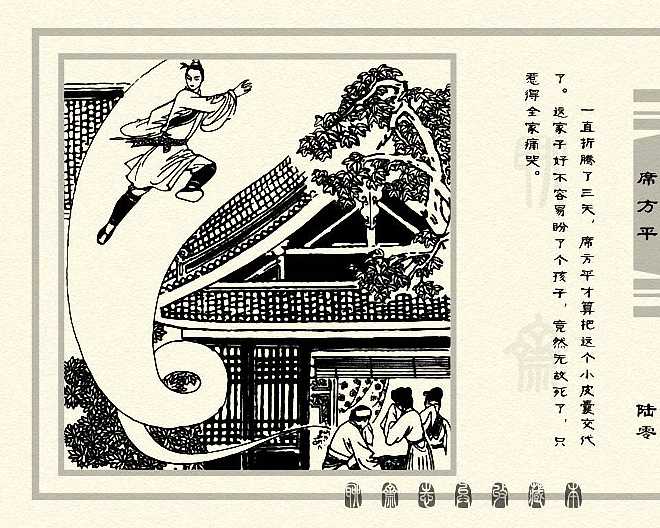 一直折腾了三天，席方平才算把这个小皮囊交代
了。这家子好不容易盼了个孩子，竟然无故死了，只
惹得全家痛哭。
席方平
陆零